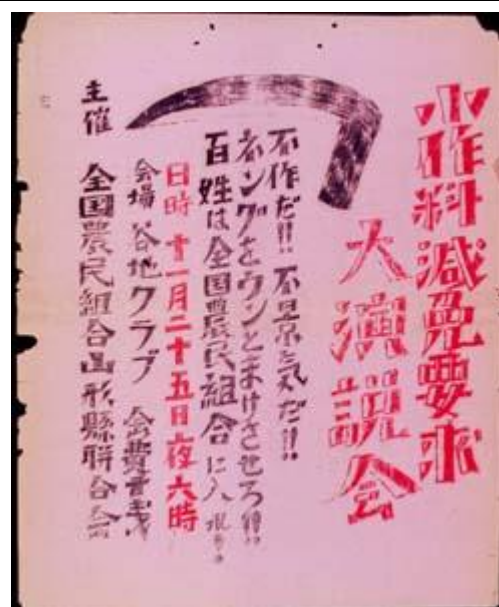 小作料減免要求
大演説会
不作だ!! 不景気だ!!
ネングをウンとまけさせろ!!
百姓は全国農民組合に入れ
日時 十一月二十五日夜六時
会場 谷地クラブ 会費
主催 全国農民組合山形縣聯合会